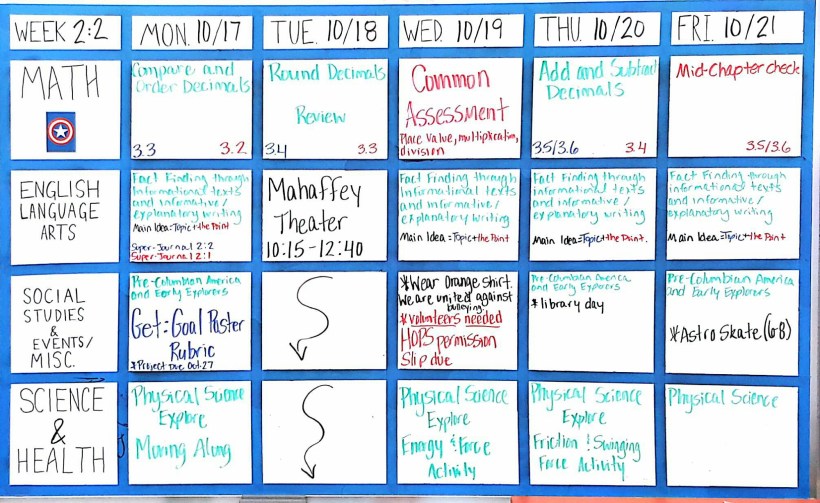 WEEK 2:2
MON. 10/17
TUE. 10/18
WED. 10/19
THU. 10/20
FRI. 10/21
MATH
Compare and
Order Decimals
3.3 3.2
Round Decimals
Review
3.4 3.3
Common
Assessment
Place value, multiplication,
division
Add and Subtract
Decimals
3.5/3.6 3.4
Mid-Chapter check
3.5/3.6
ENGLISH
LANGUAGE
ARTS
Fact Finding through
Informational texts
and informative/
explanatory writing
Main Idea=Topic+the Point
Super-Journal 2:2
Super-Journal 2:1
Mahaffey
Theater
10:15-12:40
Fact Finding through
Informational texts
and informative/
explanatory writing
Main Idea=Topic+the Point
Fact Finding through
informational texts
and informative/
explanatory writing
Main Idea=Topic+the Point.
Fact Finding through
informational texts
and informative/
explanatory writing
Main Idea=Topic+the Point
SOCIAL
STUDIES
&
EVENTS/
MISC.
Pre-Columbian America
and Early Explorers
Get: Goal Poster
Rubric
*Project Due Oct.27
*Wear Orange shirt.
We are united against
bullying!
*volunteers needed
HOPS permission
Slip due
Pre-Columbian America
and Early Explorers
*library day
Pre-Columbian America
and Early Explorers
*Astro Skate (6-8)
SCIENCE
&
HEALTH
Physical Science
Explore
Moving Along
Physical Science
Explore
Energy & Force
Activity
Physical Science
Explore
Friction ! Swinging
Force Activity
Physical Science